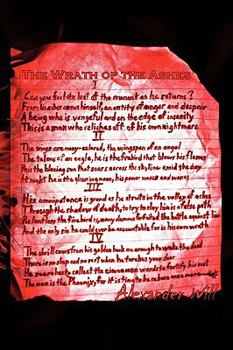 The Wrath of the Ashes
I
Can you feel the heat of the moment as he returns?
From the ashes comes himself, an entity of anger and despair
A being who is vengeful and on the edge of insanity
This is a man who of his own nightmare
II
The wings are many-colored, the wingspan of an angel
The talons of an eagle, he is the firebird that blows his flames
the blazing sun that soars across the skyline amid the day
At night he is the gleaming moon, his power waxes and wanes
III
His omnipotence is grand as he struts in the valley of ashes
Through the shadow of doubt, to try to slay him is a false path
Relentless the firebird is, enemy
And the only sin he could ever be accountable for is his own wrath
IV
The shrill caws from his golden beak are enough to wake the dead
There is no sleep and no rest when he thrashes your door
He searches to collect the cinnamon weeds to fortify his nest
The man is the Phoenix, for it is time to be reborn once more
Alexander Will